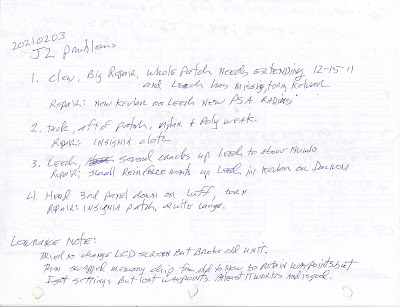 20210203
J2 problems
1. Clew, Big Repair, whole patch needs extending 12-15-11
and Leech has missing, torn, Kelvar
Repair: New Kevlar on Leech New PSA Radius
2. Tack, aft of patch, mylar & Poly weak.
Repair: INSIGNIA cloth
3. Leech, several cracks up Leech to about
Repair: Small Reinforcements up Leech in Kevlar or Dacron
4. Head 3rd panel down on Luff, torn
Repair: INSIGNIA patch, quite large.
Lowrance Note:
Tried to change LCD screen But Broke old unit.
Then swapped memory chip from old to New to retain waypoints but
kept settings But lost waypoints. At least it works and is good.